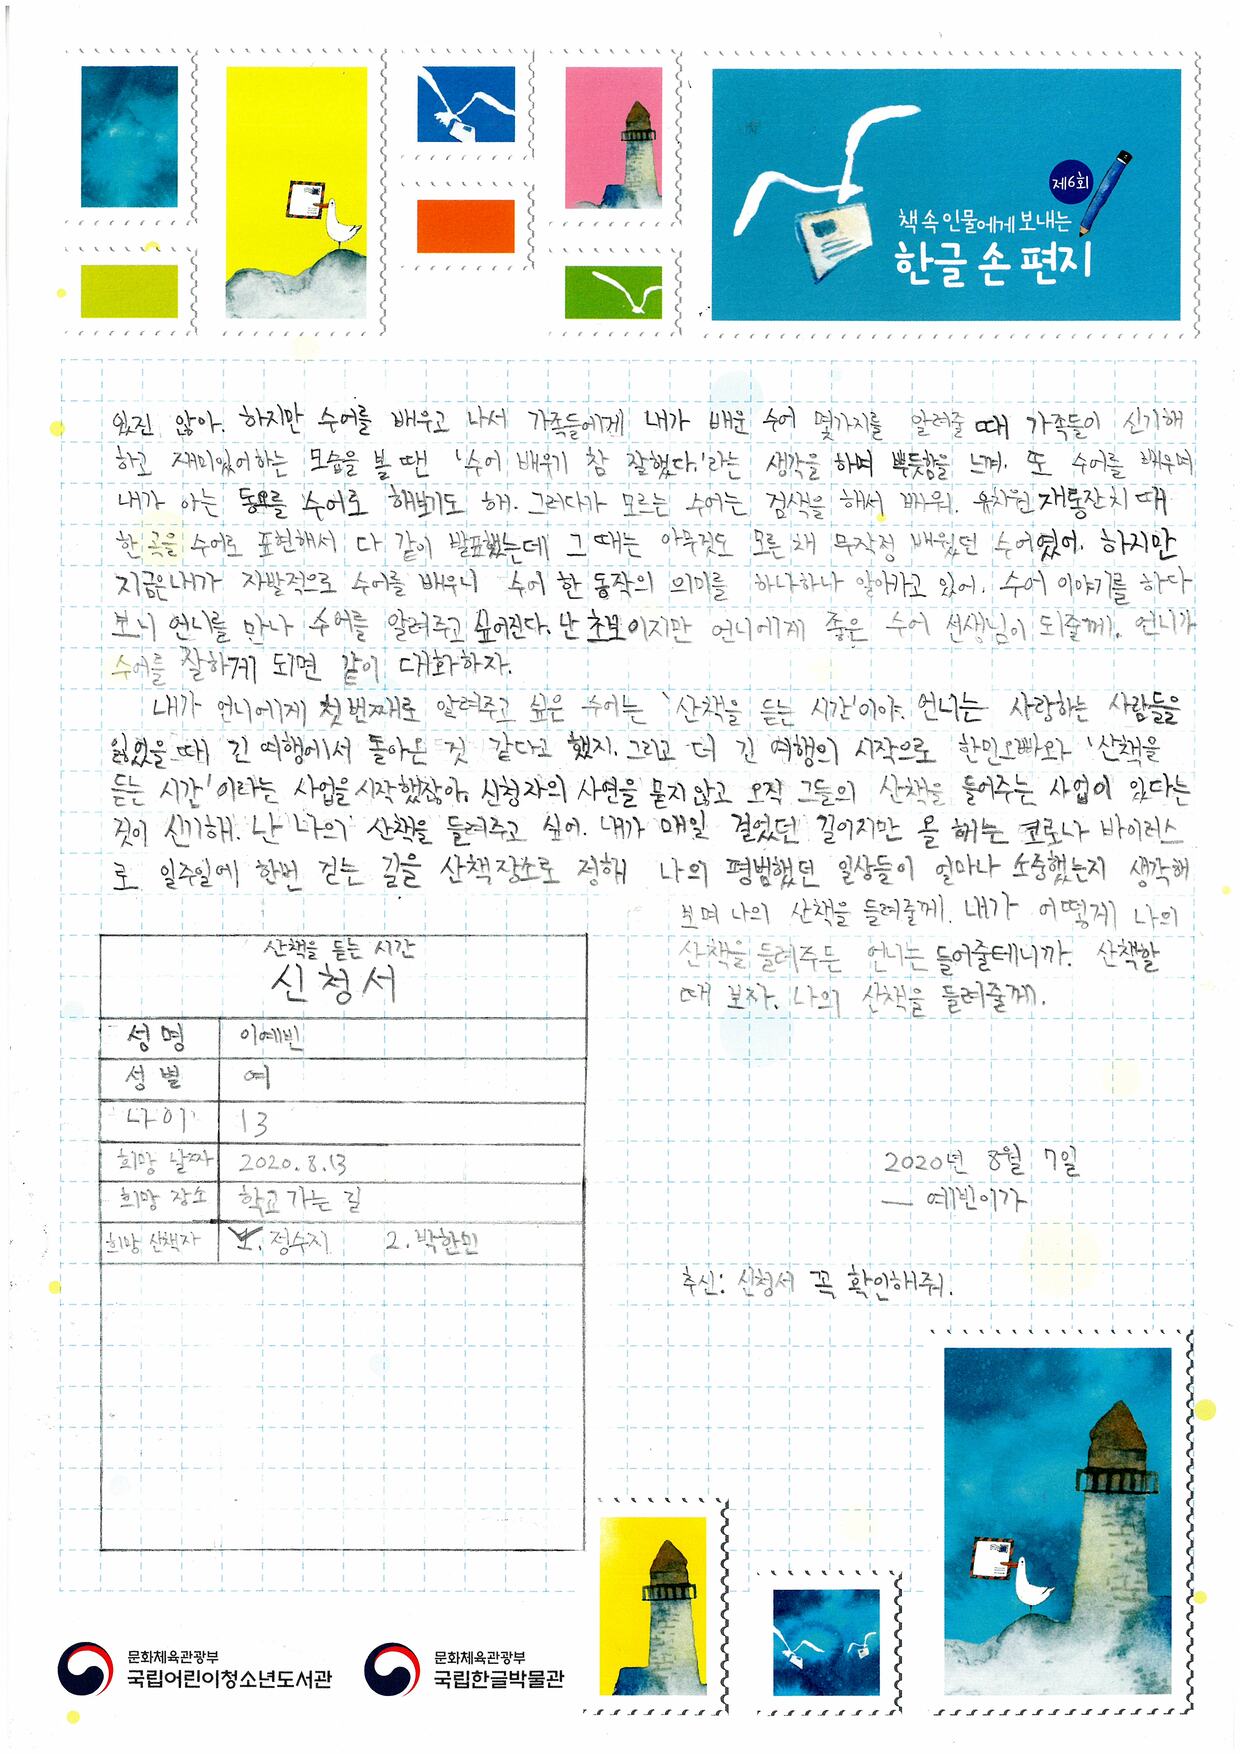 제6회
책 속 인물에게 보내는
한글 손 편지
있진 않아. 하지만 수어를 배우고 나서 가족들에게 내가 배운 수어 몇가지를 알려줄 때 가족들이 신기해
하고 재미있어하는 모습을 볼 땐 '수어 배우기 참 잘했다.'라는 생각을 하며 뿌듯함을 느껴. 또 수어를 배우며
내가 아는 동요를 수어로 해보기도 해. 그러다가 모르는 수어는 검색을 해서 배워. 유치원 재롱잔치 때
한 곡을 수어로 표현해서 다 같이 발표했는데 그 때는 아무것도 모른 채 무작정 배웠던 수어였어. 하지만
지금은 내가 자발적으로 수어를 배우니 수어 한 동작의 의미를 하나하나 알아가고 있어. 수어 이야기를 하다
보니 언니를 만나 수어를 알려주고 싶어진다. 난 초보이지만 언니에게 좋은 수어 선생님이 되줄께. 언니가
수어를 잘하게 되면 같이 대화하자.
내가 언니에게 첫번째로 알려주고 싶은 수어는 '산책을 듣는 시간'이야. 언니는 사랑하는 사람들을
잃었을 때 긴 여행에서 돌아온 것 같다고 했지. 그리고 더 긴 여행의 시작으로 한민오빠와 '산책을
듣는 시간'이라는 사업을 시작했잖아. 신청자의 사연을 묻지않고 오직 그들의 산책을 들어주는 사업이 있다는
것이 신기해. 난 나의 산책을 들려주고 싶어. 내가 매일 걸었던 길이지만 올 해는 코로나 바이러스
로 일주일에 한번 걷는 길을 산책장소로 정해 나의 평범했던 일상들이 얼마나 소중했는지 생각해
보며 나의 산책을 들려줄께. 내가 어떻게 나의
산책을 들려주든 언니는 들어줄테니까. 산책할
때 보자. 나의 산책을 들려줄께.
산책을 듣는 시간
신청서
성명 이예빈
성별 여
나이 13
희망 날짜 2020.8.13
희망 장소 학교 가는 길
희망 산책자 1. 정수지 2. 박한민
2020년 8월 7일
— 예빈이가
추신: 신청서 꼭 확인해줘.
문화체육관광부
국립어린이청소년도서관
문화체육관광부
국립한글박물관